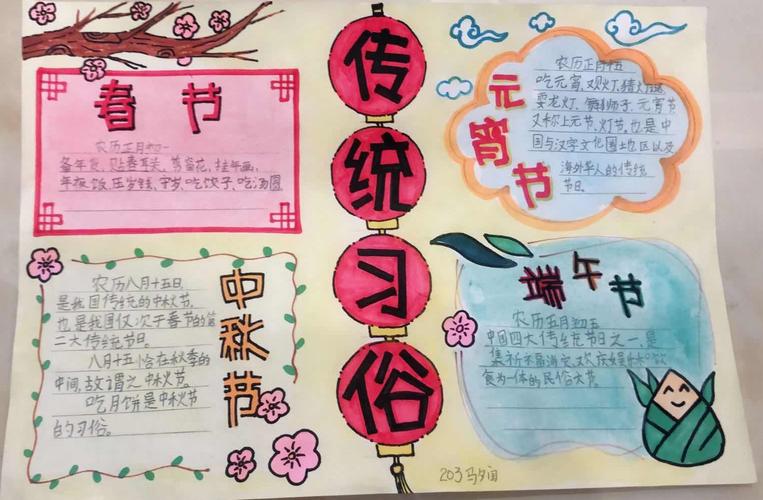 传统习俗
春节
农历正月初一
备年货、贴春联、剪窗花、挂年画、
年夜饭、压岁钱、守岁、吃饺子、吃汤圆
元宵节
农历正月十五
吃元宵、观灯、猜灯谜
耍龙灯、舞狮子、元宵节
又称上元节、灯节。也是中
国与汉字文化圈土地区以及
海外华人的传统
节日。
中秋节
农历八月十五日
是我国传统的中秋节,
也是我国仅次于春节的第
二大传统节日。
八月十五恰在秋季的
中间,故谓之中秋节。
吃月饼是中秋节
的习俗。
端午节
农历五月初五
中国四大传统节日之一,是
集祈福消灾、欢庆娱乐饮
食为一体的民俗大节
203马夕